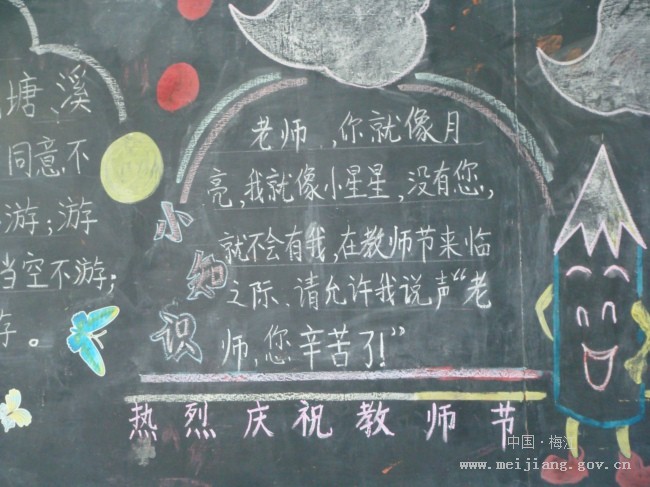 塘、溪
同意不
游;游
当空不游;
。
小知识
老师,你就像月
亮,我就像小星星,没有您,
就不会有我,在教师节来临
之际、请允许我说声“老
师,您辛苦了!”
热烈庆祝教师节
中国·梅江
www.meijiang.gov.cn